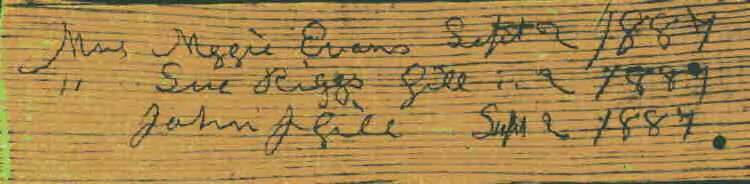 Mrs Aggie Evans Sept 2 1887
" Sue Riggs Gill in 2 1887
John J Gill Sept 2 1887.